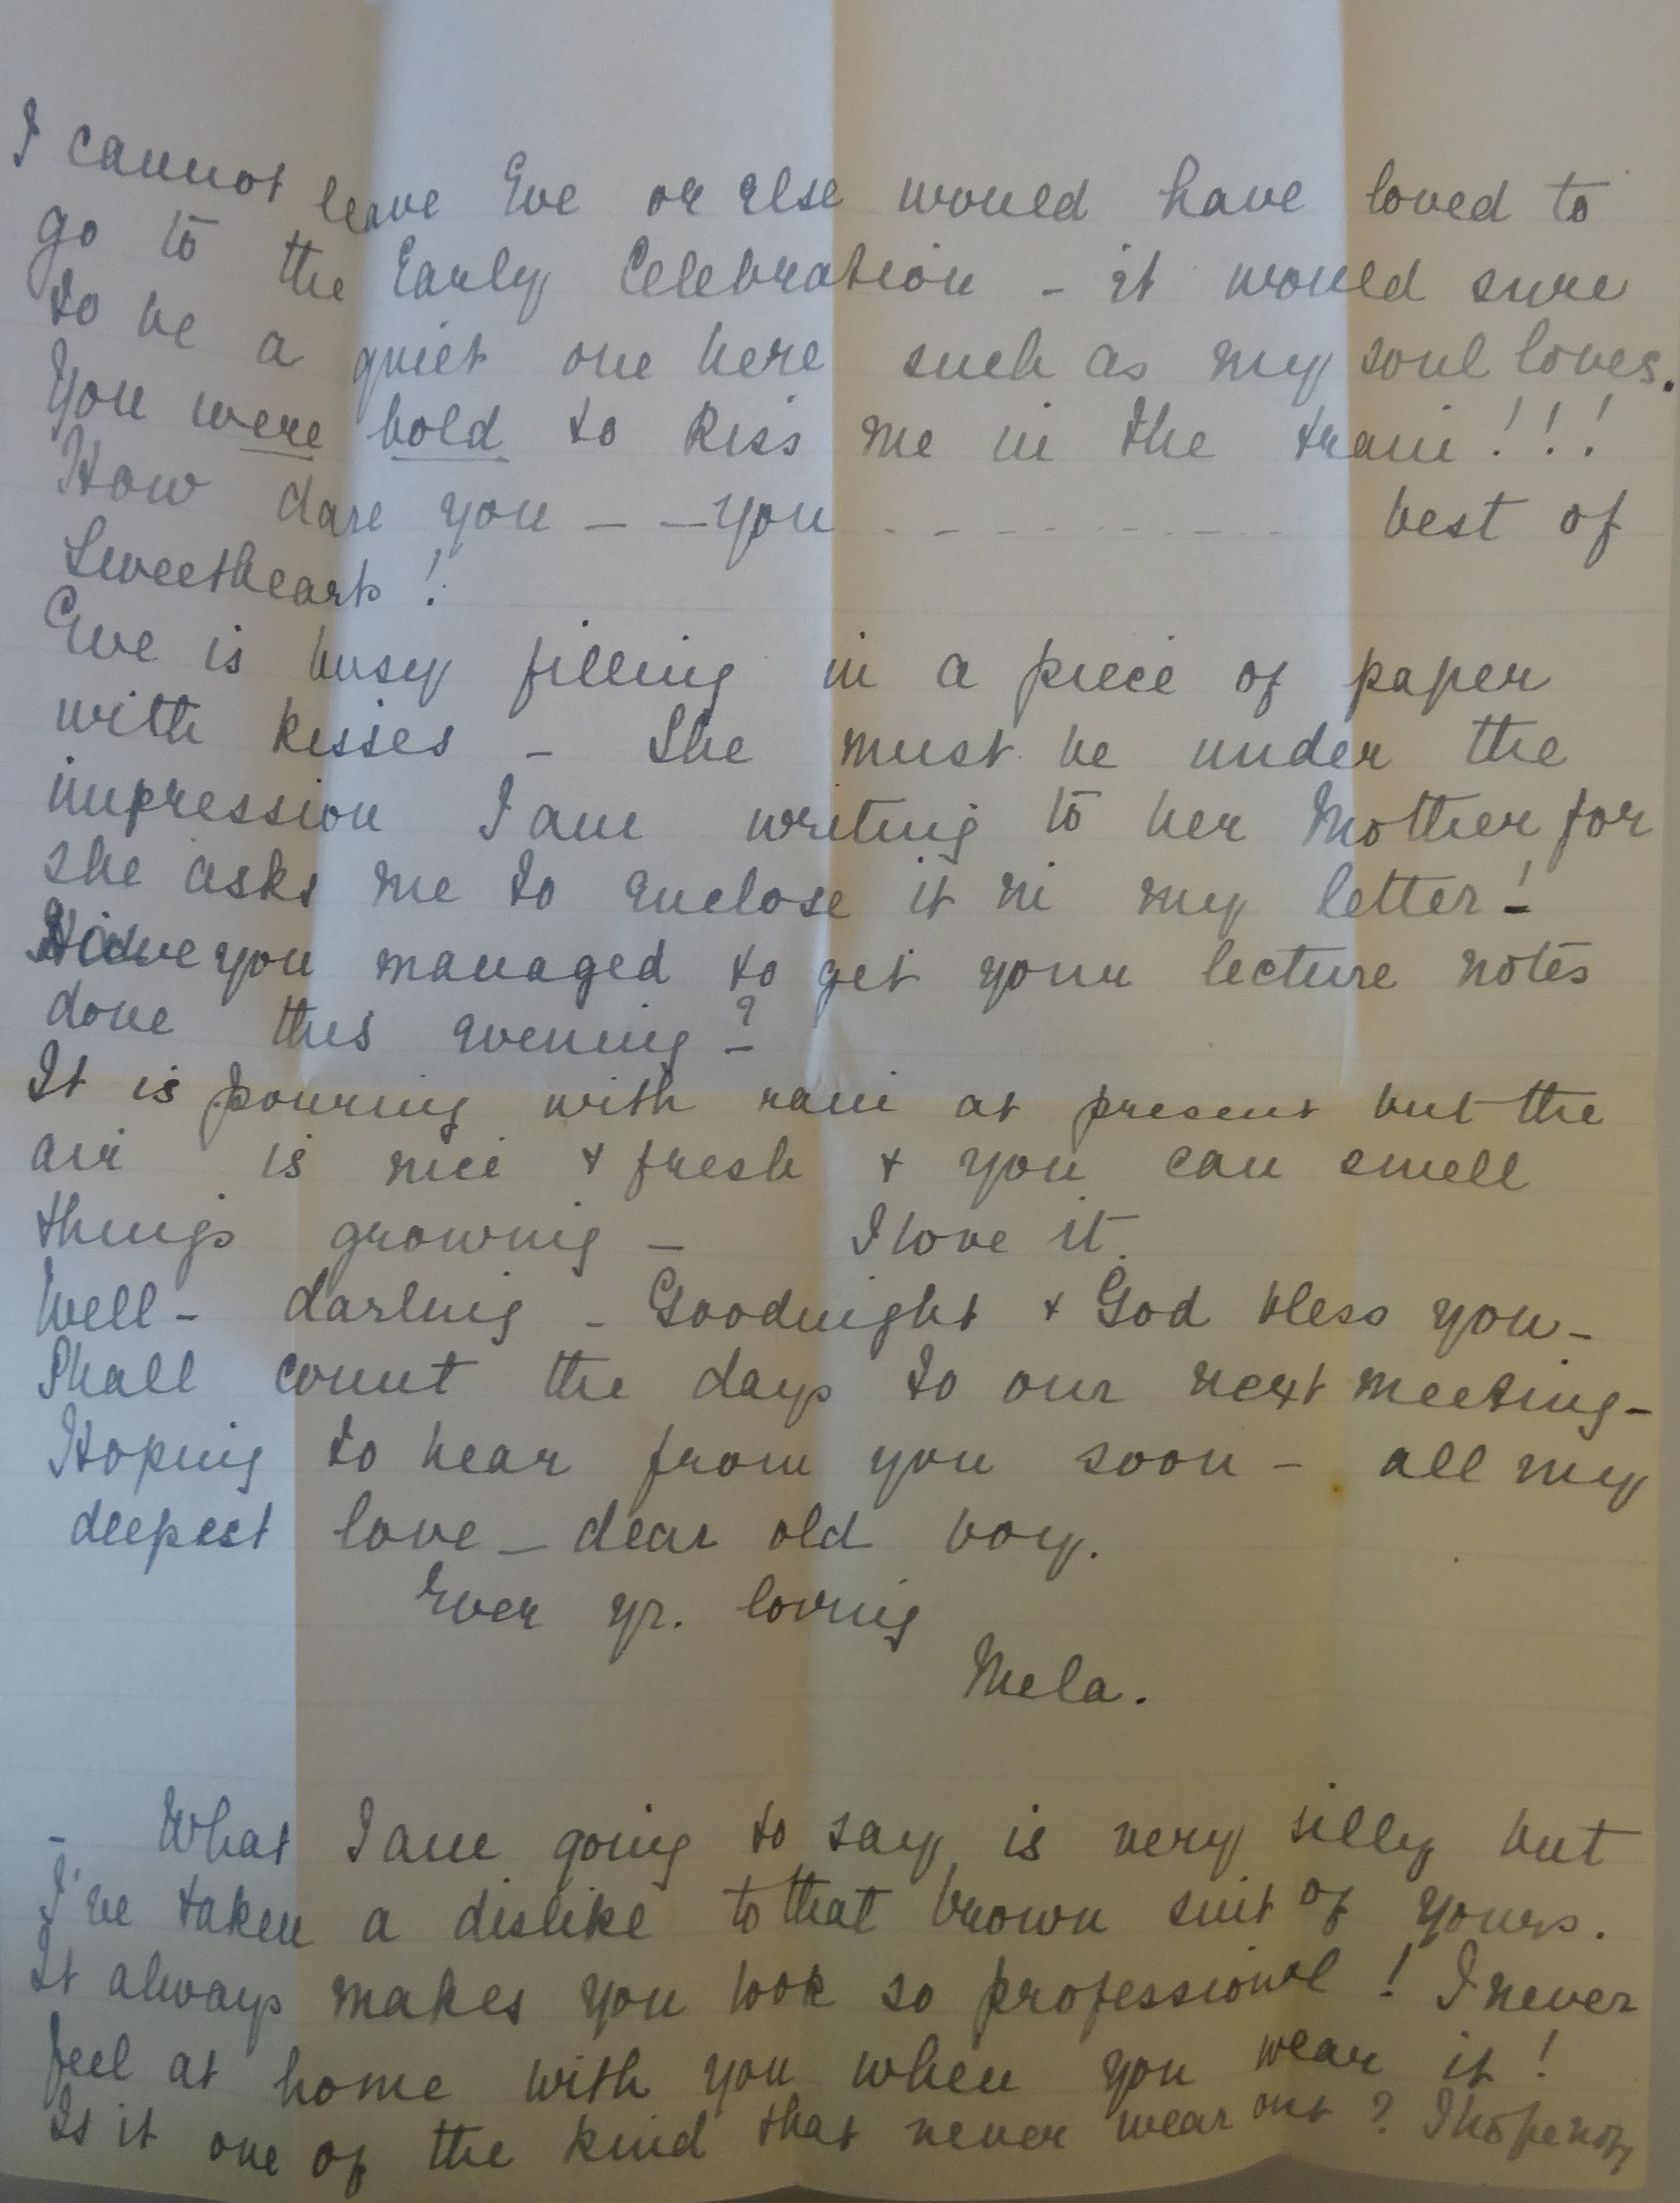 I cannot leave Eve or else would have loved to
go to the Early Celebration - it would sure
to be a quiet one here such as my soul loves.
You were bold to kiss me in the train!!!
How dare you - - you - - - - - - - - - best of
Sweethearts!
Eve is busy filling in a piece of paper
with kisses - She must be under the
impression I am writing to her Mother for
she asks me to enclose it in my letter!
Have you managed to get your lecture notes
done this evening?
It is pouring with rain at present but the
air is nice & fresh & you can smell
things growing - I love it.
Well - darling - Goodnight & God bless you -
Shall count the days to our next meeting -
Hoping to hear from you soon - all my
deepest love - dear old boy.
Ever yr. loving
Mela.
- What I am going to say is very silly but
I've taken a dislike to that brown suit of yours.
It always makes you look so professional! I never
feel at home with you when you wear it!
Is it one of the kind that never wear out? I hope not